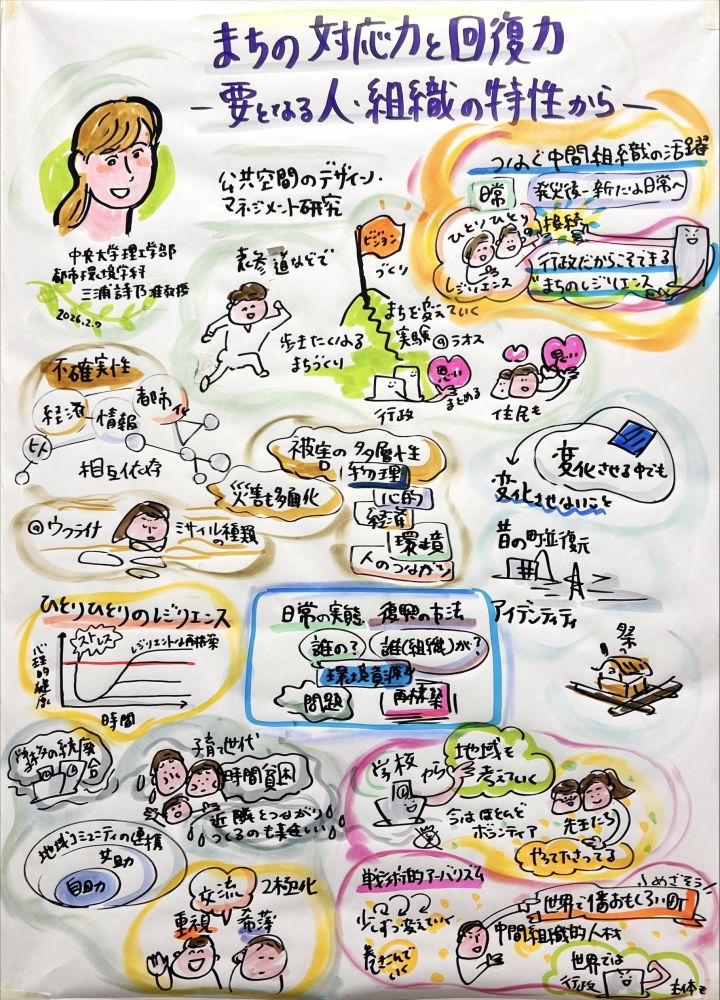 まちの対応力と回復力
―要となる人・組織の特性から―
中央大学理工学部
都市環境学科
三浦詩乃准教授
2026.2.9
公共空間のデザイン・
マネジメント研究
つなぐ中間組織の活躍
日常
発災後―新たな日常へ
ひとりひとりの
レジリエンス
接続
行政だからこそできる
まちのレジリエンス
表参道などで
歩きたくなる
まちづくり
ビジョン
づくり
まちを変えていく
実験@ラオス
行政
思い
まとめる
思い
住民も
不確実性
経済
情報
都市化
ヒト
相互依存
災害も多面化
@ウクライナ
ミサイルの種類
被害の多層性
物理
心的
経済
環境
人のつながり
変化させる中でも
変化させないこと
昔の町並復元
アイデンティティ
祭
ひとりひとりのレジリエンス
心理的健康
ストレス
レジリエントな再構築
時間
日常の実態
復興の方法
誰の?
誰(組織)が?
環境資源
問題
再構築
学校の統廃合
子育て世代
時間貧困
近隣とつながり
つくるのも難しい
地域コミュニティの連携
共助
自助力
交流
2極化
重視
希薄
学校
から
地域を
考えていく
今はほとんど
ボランティア
先生たち
やってたさってる
戦術的アーバニズム
少しずつ変えていく
巻きこんで
いく
めざそう!
世界で1番おもしろい町
中間組織的人材
世界では
行政
主体も